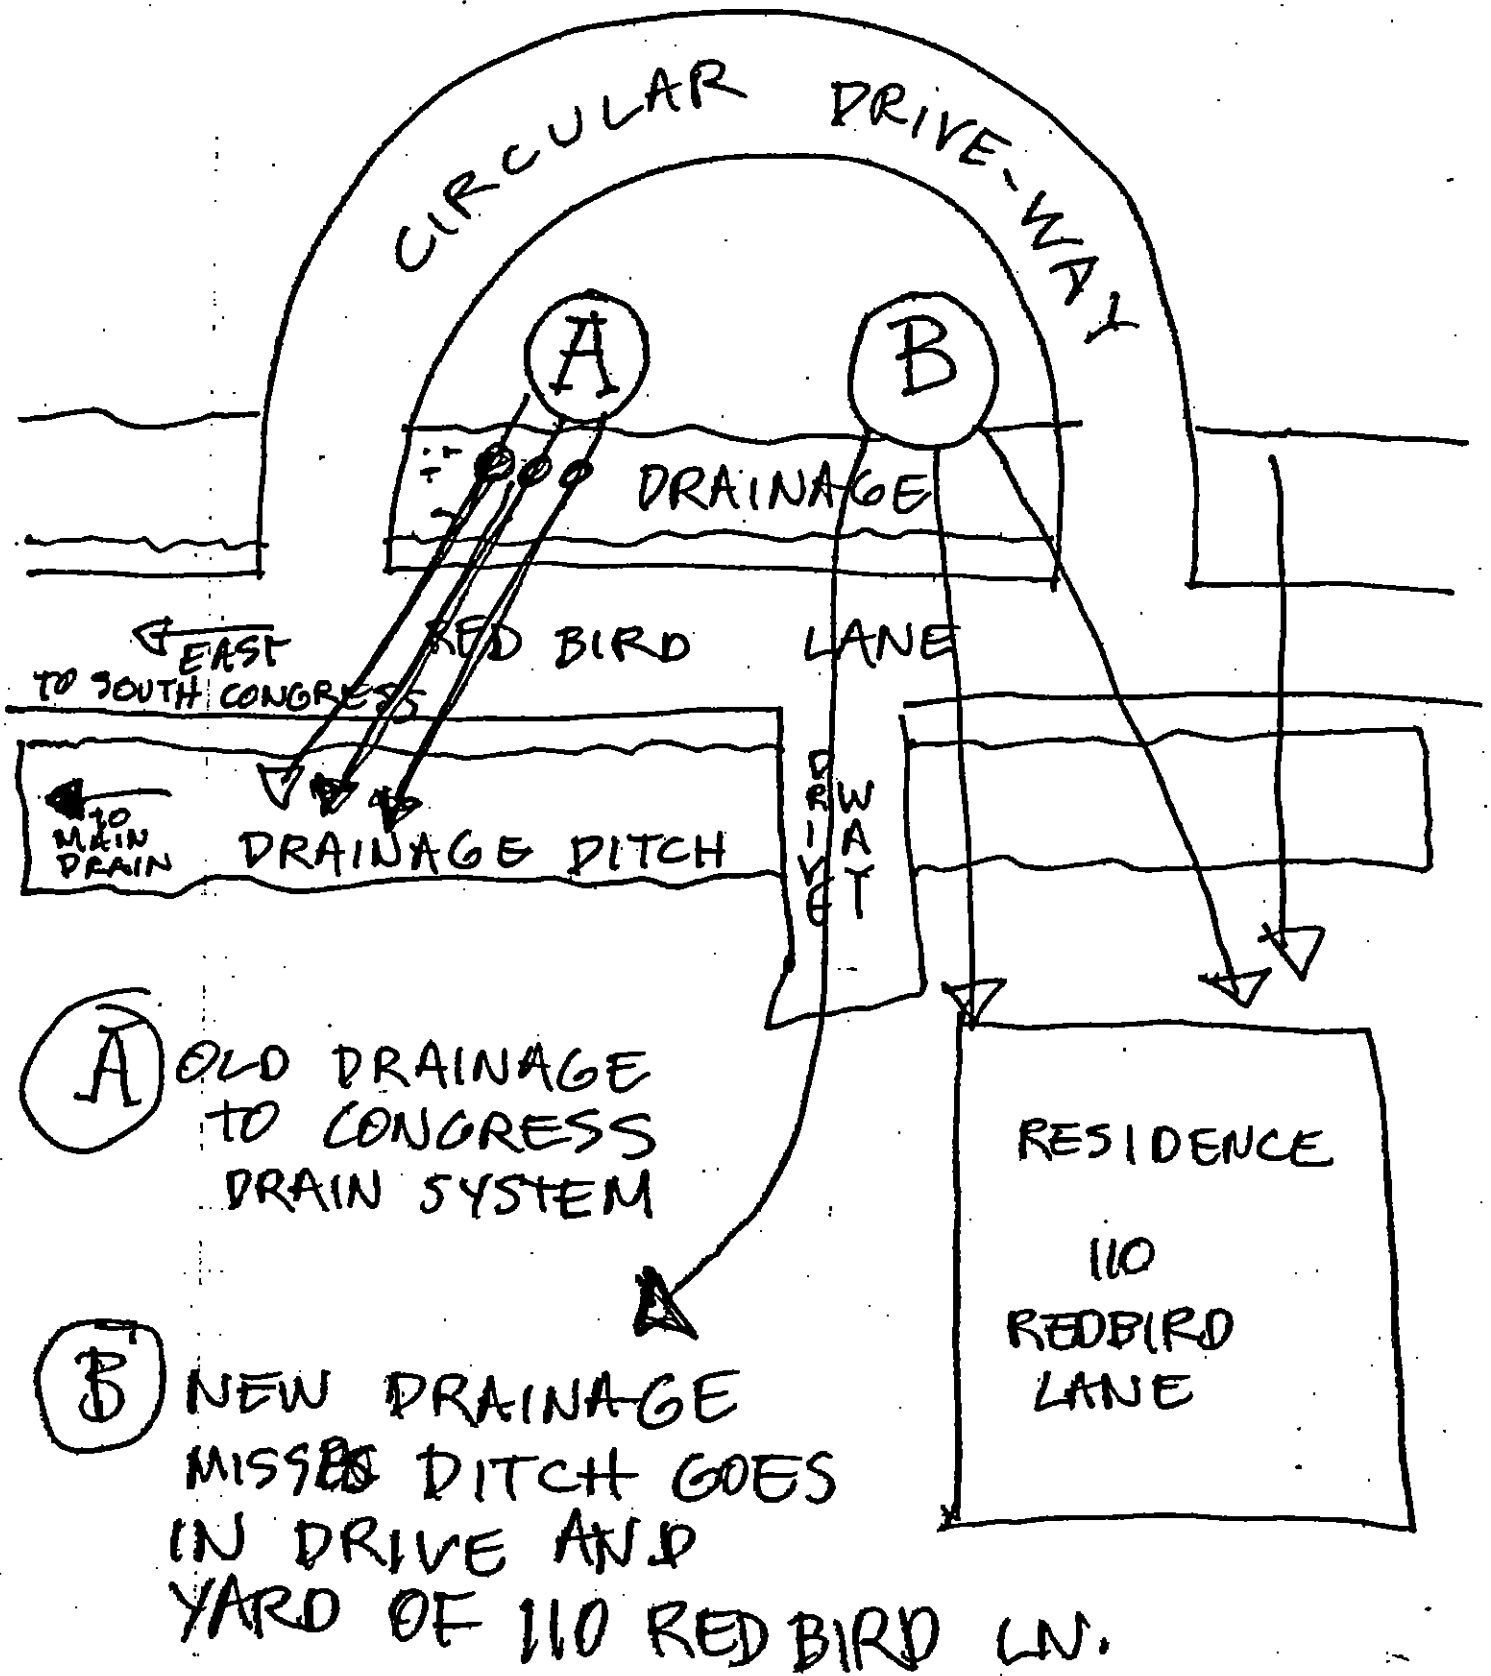 CIRCULAR DRIVE-WAY
A
B
DRAINAGE
EAST
TO SOUTH CONGRESS
RED BIRD LANE
DRIVE WAY
TO
MAIN
DRAIN
DRAINAGE DITCH
A OLD DRAINAGE
TO CONGRESS
DRAIN SYSTEM
RESIDENCE
110
REDBIRD
LANE
B NEW DRAINAGE
MISSES DITCH GOES
IN DRIVE AND
YARD OF 110 RED BIRD LN.